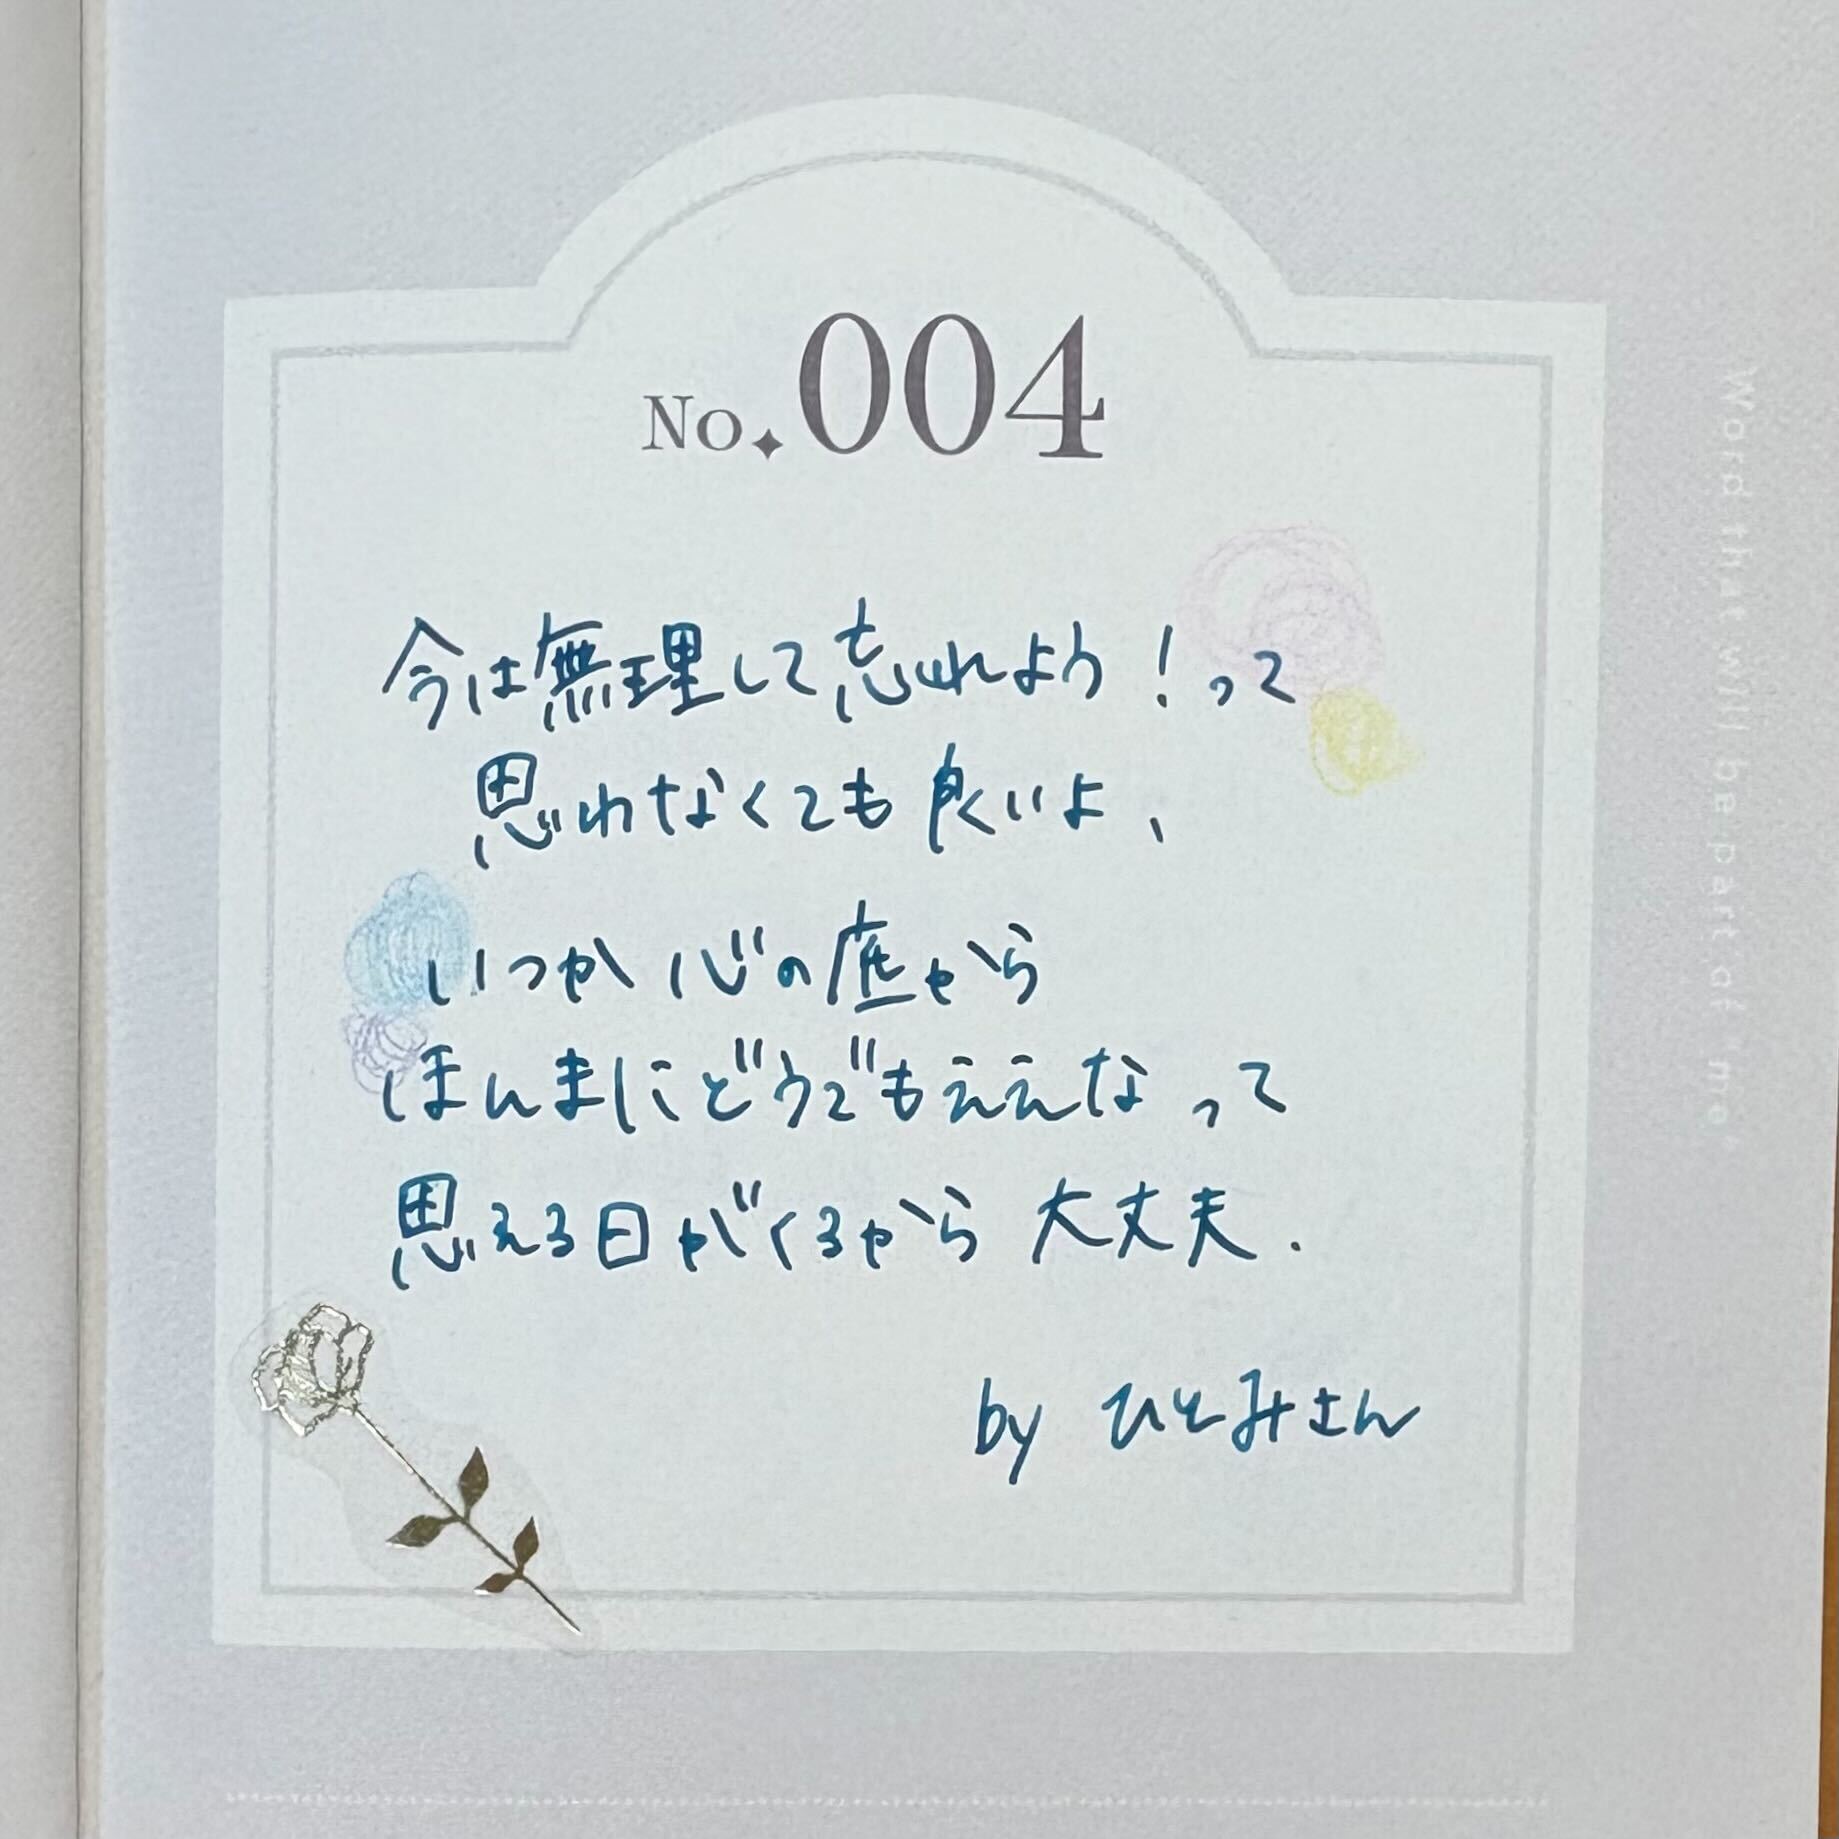 No.004
今は無理して忘れよう！って
思わなくても良いよ、
いつか心の底から
ほんまにどうでもええなって
思える日がくるから大丈夫.
by ひとみさん
Word that will be part of me